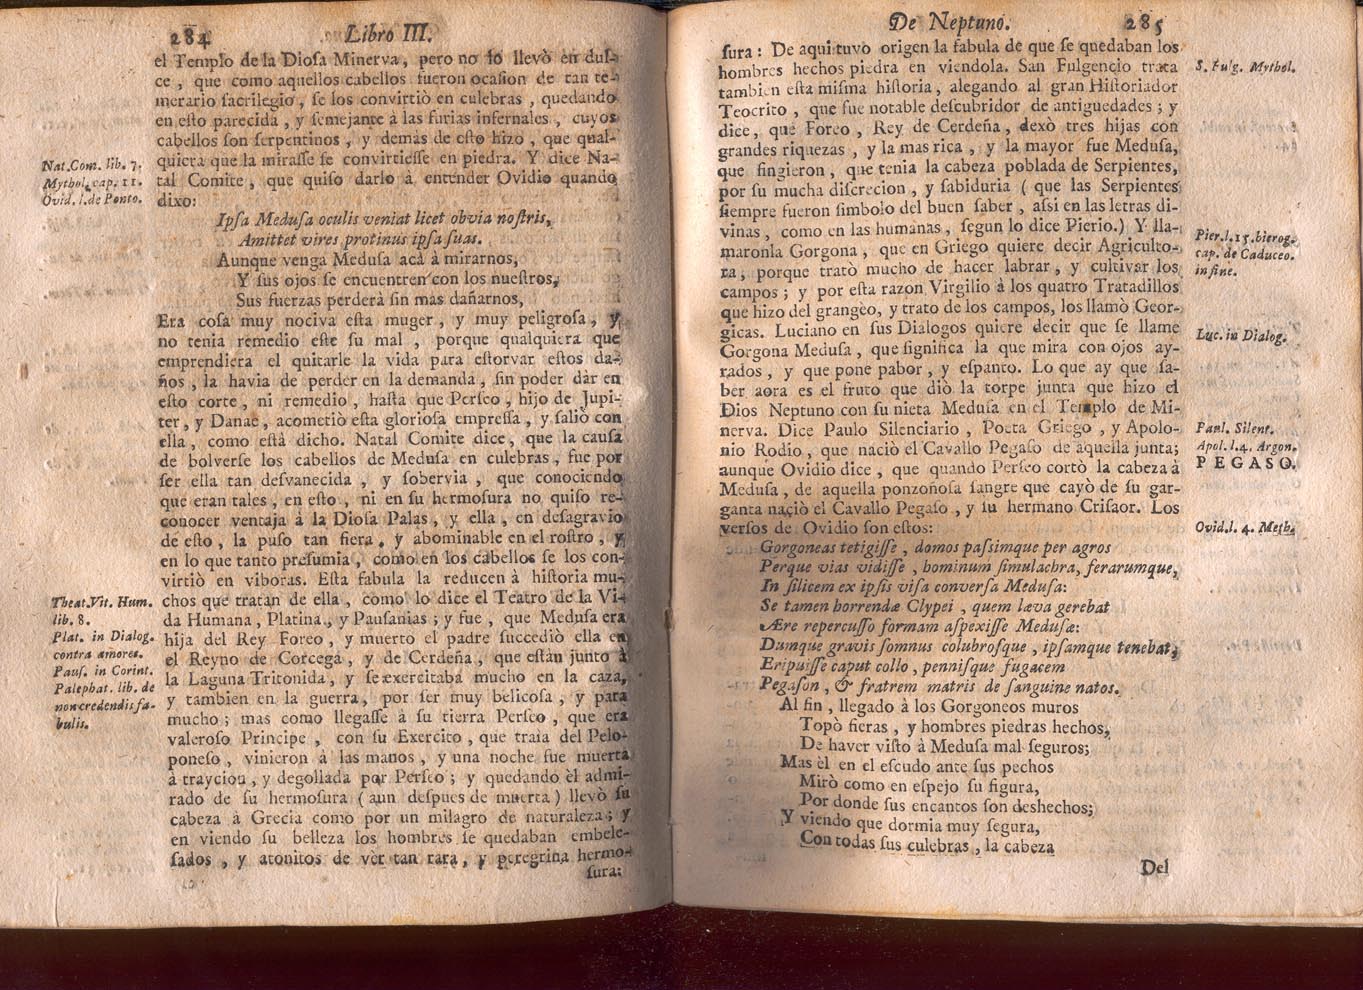 284 Libro III.
el Templo de la Diosa Minerva, pero no lo llevò en dul-
ce, que como aquellos cabellos fueron ocasion de tan te-
merario sacrilegio, se los convirtiò en culebras, quedando
en esto parecida, y semejante à las furias infernales, cuyos
cabellos son serpentinos, y demás de esto hizo, que qual-
quiera que la mirasse se convirtiesse en piedra. Y dice Na-
tal Comite, que quiso darlo à entender Ovidio quando
dixo:
Nat. Com. lib. 7.
Mythol. cap. 11.
Ovid. l. de Ponto.
Ipsa Medusa oculis veniat licet obvia nostris,
Amittet vires protinus ipsa suas.
Aunque venga Medusa acà à mirarnos,
Y sus ojos se encuentren con los nuestros,
Sus fuerzas perderà sin mas dañarnos,
Era cosa muy nociva esta muger, y muy peligrosa, y
no tenia remedio este su mal, porque qualquiera que
emprendiera el quitarle la vida para estorvar estos da-
ños, la havia de perder en la demanda, sin poder dàr en
esto corte, ni remedio, hasta que Perseo, hijo de Jupi-
ter, y Danae, acometiò esta gloriosa empressa, y saliò con
ella, como està dicho. Natal Comite dice, que la causa
de bolverse los cabellos de Medusa en culebras, fue por
ser ella tan desvanecida, y sobervia, que conociendo
que eran tales, en esto, ni en su hermosura no quiso re-
conocer ventaja à la Diosa Palas, y ella, en desagravio
de esto, la puso tan fiera, y abominable en el rostro, y
en lo que tanto presumia, como en los cabellos se los con-
virtiò en viboras. Esta fabula la reducen à historia mu-
chos que tratan de ella, como lo dice el Teatro de la Vi-
da Humana, Platina, y Pausanias; y fue, que Medusa era
hija del Rey Foreo, y muerto el padre succediò ella en
el Reyno de Corcega, y de Cerdeña, que estàn junto à
la Laguna Tritonida, y se exercitaba mucho en la caza,
y tambien en la guerra, por ser muy belicosa, y para
mucho; mas como llegasse à su tierra Perseo, que era
valeroso Principe, con su Exercito, que traìa del Pelo-
poneso, vinieron à las manos, y una noche fue muerta
à traycion, y degollada por Perseo; y quedando èl admi-
rado de su hermosura (aun despues de muerta) llevò su
cabeza à Grecia como por un milagro de naturaleza; y
en viendo su belleza los hombres se quedaban embele-
sados, y atonitos de vèr tan rara, y peregrina hermo-
sura:
Theat. Vit. Hum.
lib. 8.
Plat. in Dialog.
contra amores.
Paus. in Corint.
Palephat. lib. de
non credendis fa-
bulis.
De Neptuno. 285
sura: De aqui tuvo origen la fabula de que se quedaban los
hombres hechos piedra en viendola. San Fulgencio trata
tambien esta misma historia, alegando al gran Historiador
Teocrito, que fue notable descubridor de antiguedades; y
dice, que Foreo, Rey de Cerdeña, dexò tres hijas con
grandes riquezas, y la mas rica, y la mayor fue Medusa,
que fingieron, que tenia la cabeza poblada de Serpientes,
por su mucha discrecion, y sabiduria (que las Serpientes
siempre fueron simbolo del buen saber, assi en las letras di-
vinas, como en las humanas, segun lo dice Pierio.) Y lla-
maronla Gorgona, que en Griego quiere decir Agriculto-
ra, porque tratò mucho de hacer labrar, y cultivar los
campos; y por esta razon Virgilio à los quatro Tratadillos
que hizo del grangeo, y trato de los campos, los llamò Geor-
gicas. Luciano en sus Dialogos quiere decir que se llame
Gorgona Medusa, que significa la que mira con ojos ay-
rados, y que pone pabor, y espanto. Lo que ay que sa-
ber aora es el fruto que diò la torpe junta que hizo el
Dios Neptuno con su nieta Medusa en el Templo de Mi-
nerva. Dice Paulo Silenciario, Poeta Griego, y Apolo-
nio Rodio, que naciò el Cavallo Pegaso de aquella junta;
aunque Ovidio dice, que quando Perseo cortò la cabeza à
Medusa, de aquella ponzoñosa sangre que cayò de su gar-
ganta naciò el Cavallo Pegaso, y su hermano Crisaor. Los
versos de Ovidio son estos:
S. Fulg. Mythol.
Pier. l. 15. hierog.
cap. de Caduceo.
in fine.
Luc. in Dialog.
Paul. Silent.
Apol. l. 4. Argon.
PEGASO.
Ovid. l. 4. Meth.
Gorgoneas tetigisse, domos passimque per agros
Perque vias vidisse, hominum simulachra, ferarumque,
In silicem ex ipsis visa conversa Medusa:
Se tamen horrendæ Clypei, quem læva gerebat
Ære repercusso formam aspexisse Medusæ:
Dumque gravis somnus colubrosque, ipsamque tenebat,
Eripuisse caput collo, pennisque fugacem
Pegason, & fratrem matris de sanguine natos.
Al fin, llegado à los Gorgoneos muros
Topò fieras, y hombres piedras hechos,
De haver visto à Medusa mal seguros;
Mas èl en el escudo ante sus pechos
Mirò como en espejo su figura,
Por donde sus encantos son deshechos;
Y viendo que dormia muy segura,
Con todas sus culebras, la cabeza
Del